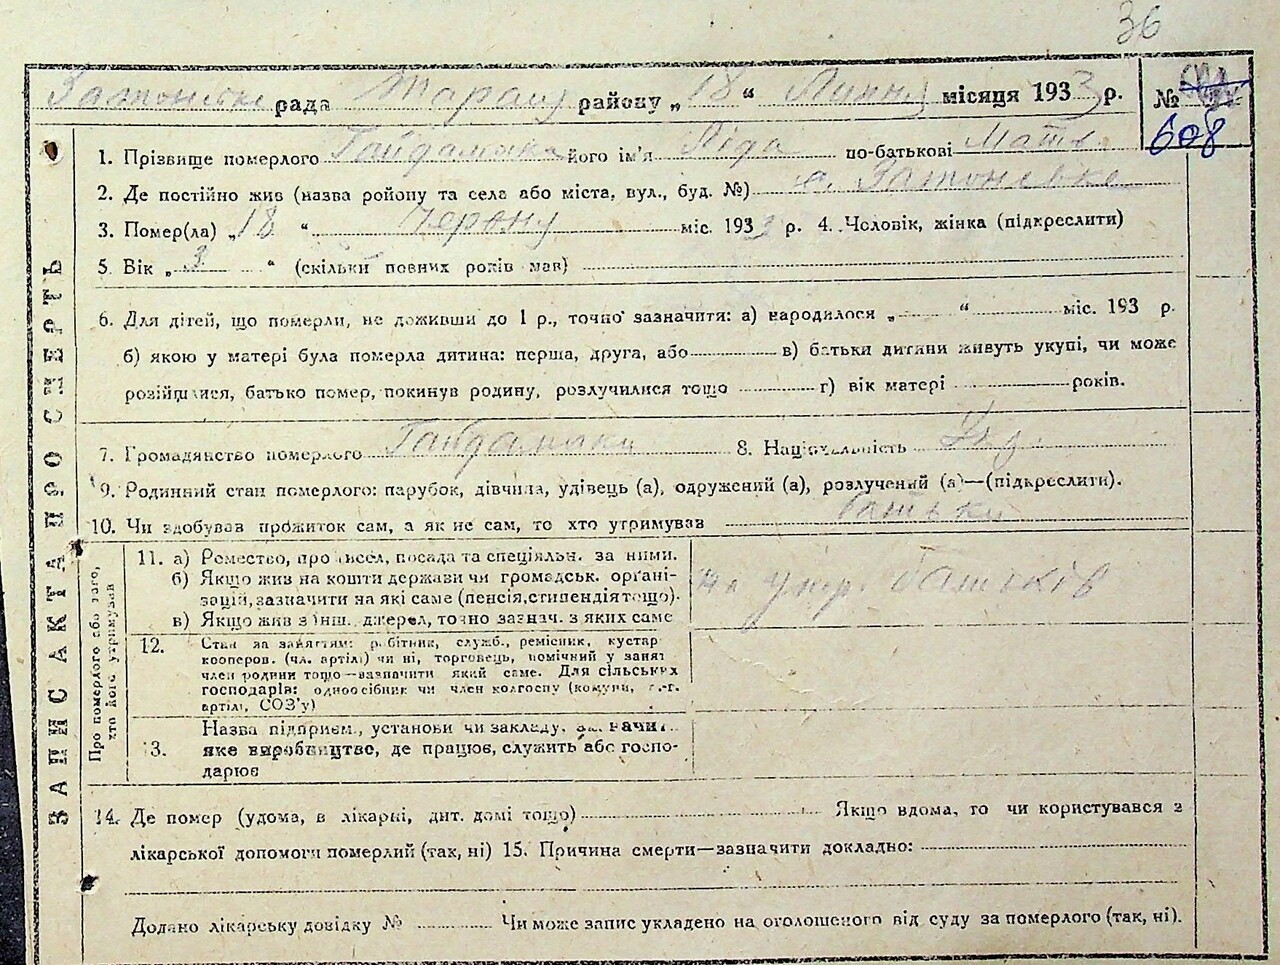 36
рада району „18“ Липня місяця 1933 р. №
608
1. Прізвище померлого Гайдамака його ім'я Ліда по-батькові Матв.
2. Де постійно жив (назва ройону та села або міста, вул., буд. №) с.
3. Помер(ла) „18“ Червну міс. 1933 р. 4. Чоловік, жінка (підкреслити)
5. Вік „3“ (скільки повних років мав)
6. Для дітей, що померли, не доживши до 1 р., точно зазначити: а) народилося „ “ міс. 193 р.
б) якою у матері була померла дитина: перша, друга, або в) батьки дитяни живуть укупі, чи може
розійшлися, батько помер, покинув родину, розлучилися тощо г) вік матері років.
7. Громадянство померлого Гайдамаки 8. Національність Укр.
9. Родинний стан померлого: парубок, дівчина, удівець (а), одружений (а), розлучений (а)—(підкреслити).
10. Чи здобував прожиток сам, а як не сам, то хто утримував батьки
ЗАПИС АКТА ПРО СМЕРТЬ
Про померлого або того, хто його утримував
11. а) Ремество, промисел, посада та спеціяльн. за ними.
б) Якщо жив на кошти держави чи громадськ. органі-
зацій, зазначити на які саме (пенсія, стипендія тощо).
в) Якщо жив з інш. джерел, точно зазнач. з яких саме
на утр. батьків
12. Стан за заняттям: робітник, служб., ремісник, кустар
кооперов. (чл. артілі) чи ні, торговець, помічний у занят
член родини тощо—зазначити який саме. Для сільських
господарів: одноосібник чи член колгоспу (комуни, с.-г.
артілі, СОЗ'у)
Назва підприєм., установи чи закладу, зазначит.
13. яке виробництво, де працює, служить або госпо-
дарює
14. Де помер (удома, в лікарні, дит. домі тощо) Якщо вдома, то чи користувався з
лікарської допомоги померлий (так, ні) 15. Причина смерти—зазначити докладно:
Додано лікарську довідку № Чи може запис укладено на оголошеного від суду за померлого (так, ні).